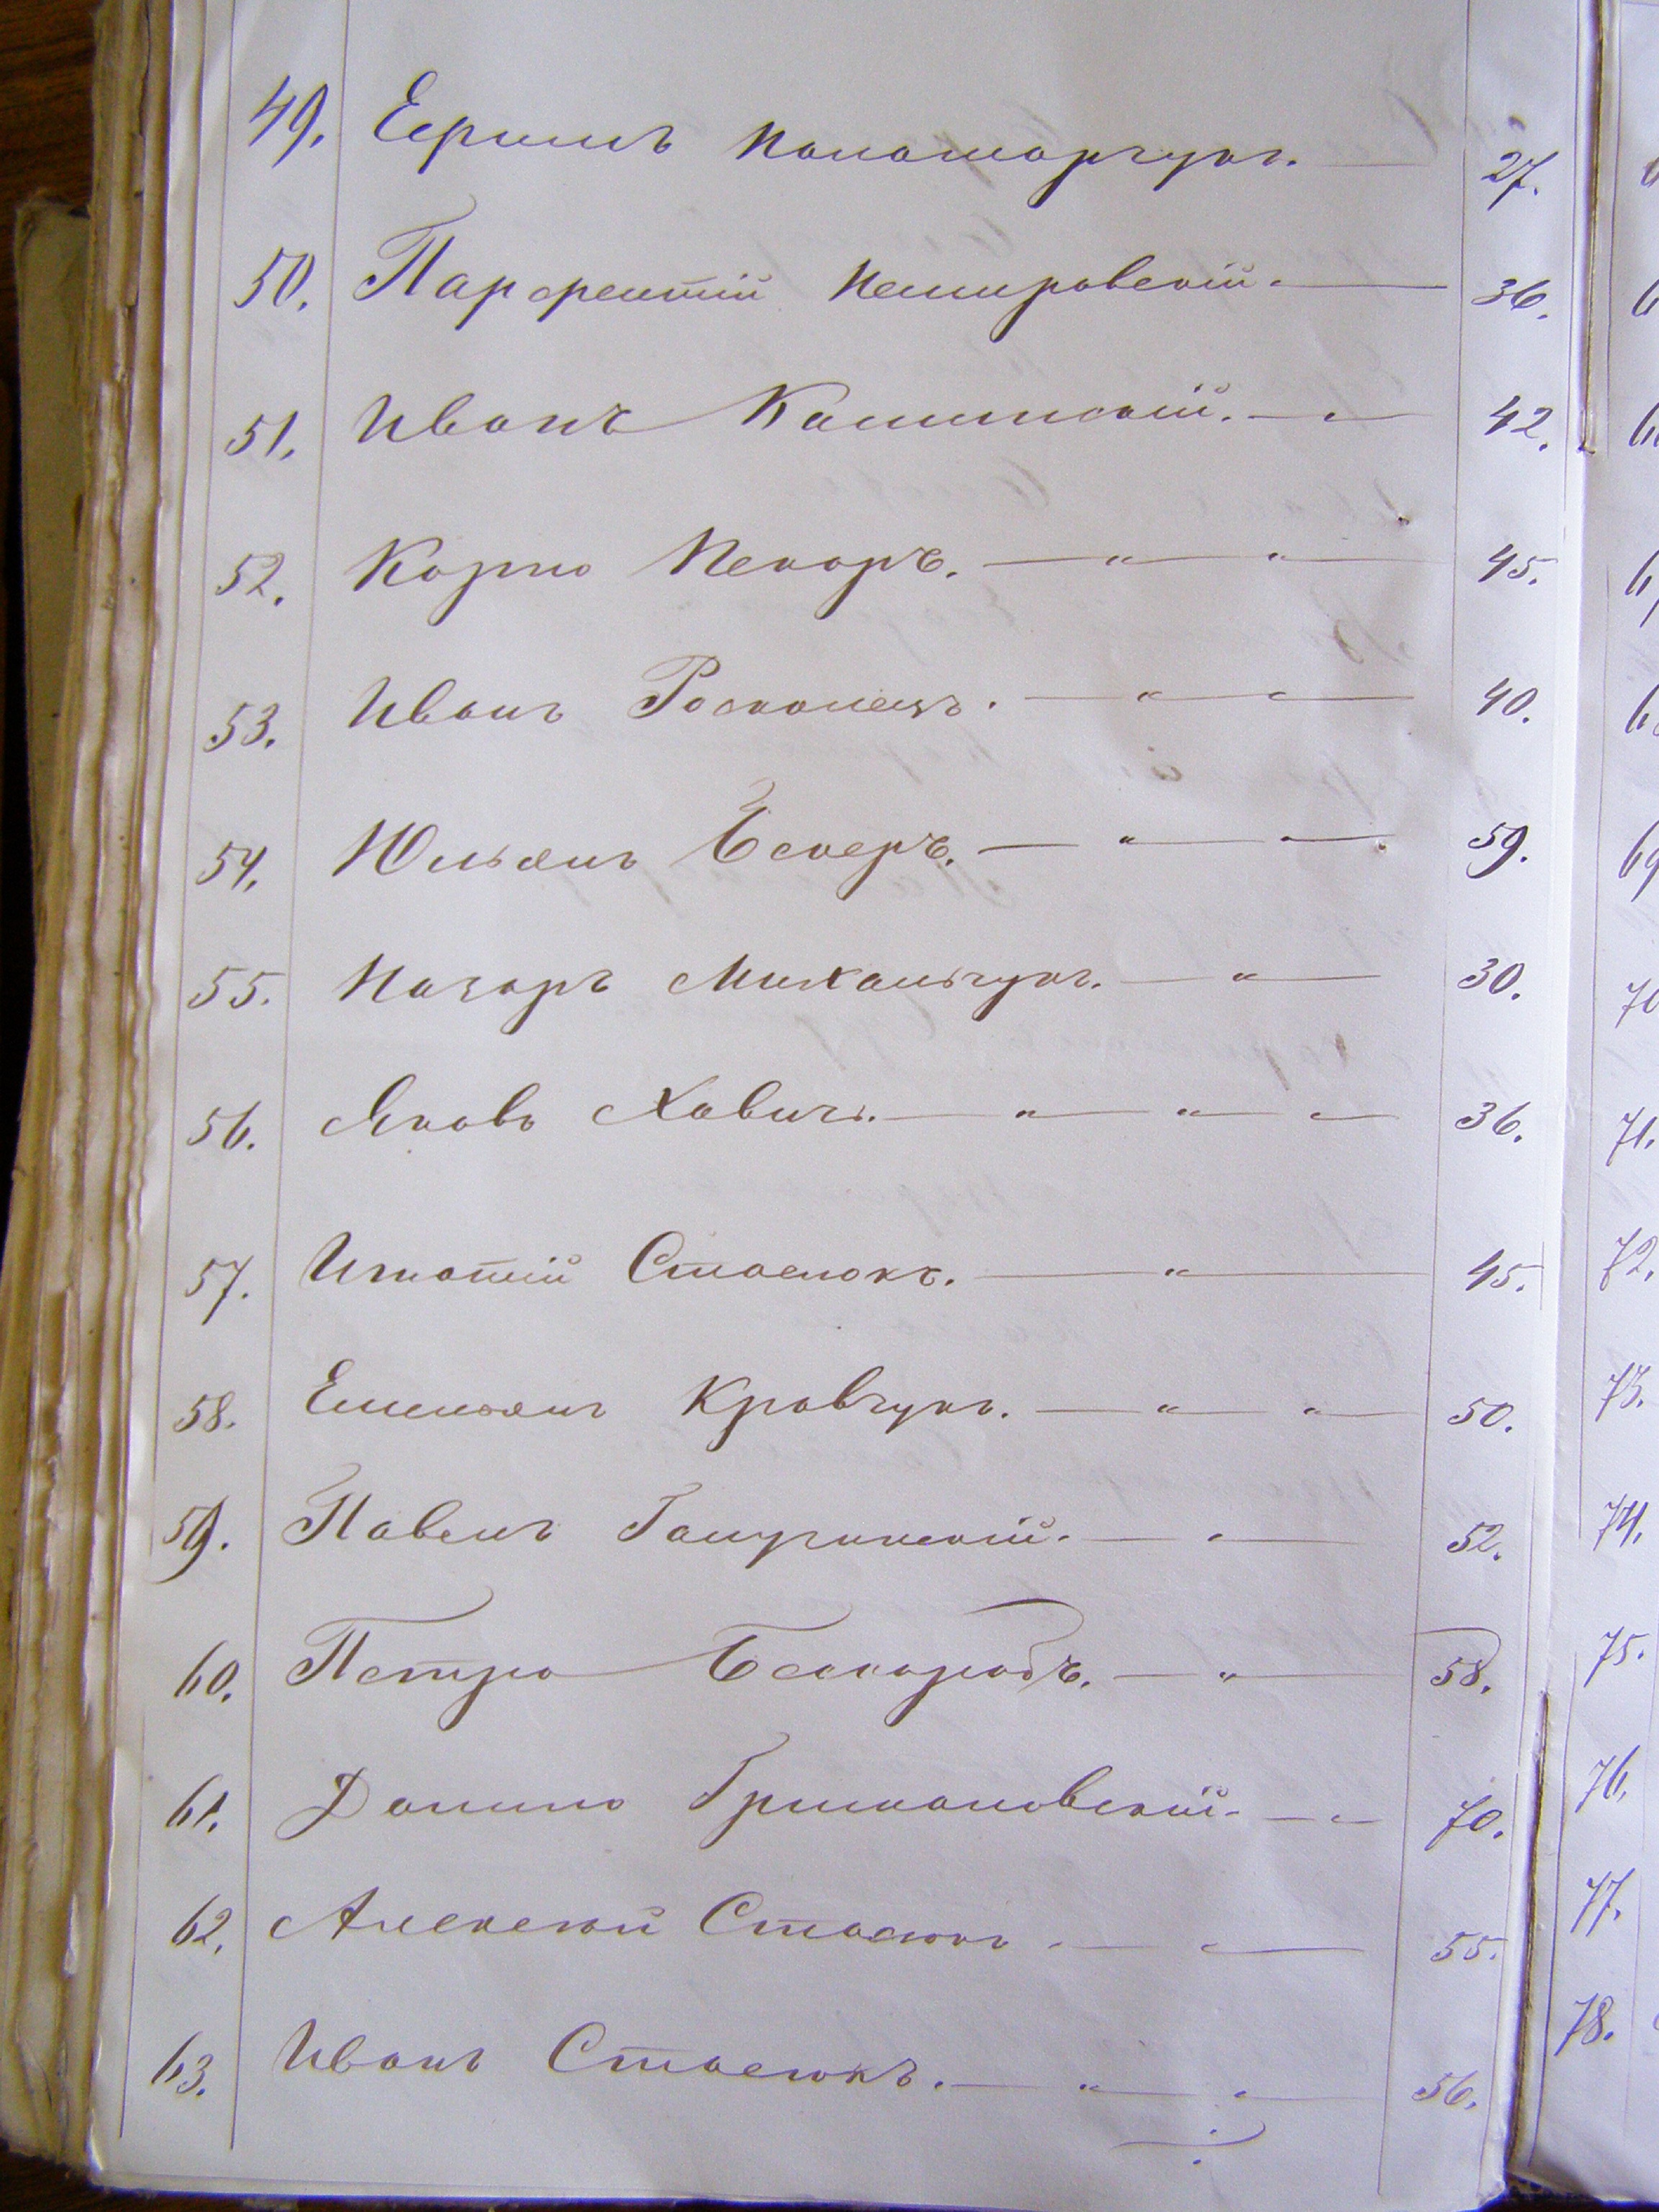 49. Ефимъ Паламарчукъ. — 27.
50. Парфентій Немировскій. — 36.
51. Иванъ Каминскій. — „ 42.
52. Карпо Пекаръ. — „ — „ 45.
53. Иванъ Росколецъ. — „ — „ 40.
54. Юльянъ Бекеръ. — „ — „ 59.
55. Назаръ Михальчукъ. — „ — 30.
56. Яковъ Хавичъ. — „ — „ — „ 36.
57. Игнатій Стасюкъ. — „ — 45.
58. Емельянъ Кравчукъ. — „ — „ 50.
59. Павелъ — „ — 52.
60. Петро — „ — 58.
61. Данило Гримановскій. — „ 70.
62. Алексѣй Стасюкъ — „ — 55.
63. Иванъ Стасюкъ. — „ — „ — 56.
69
70
71.
72.
73.
74.
75.
76.
77.
78.